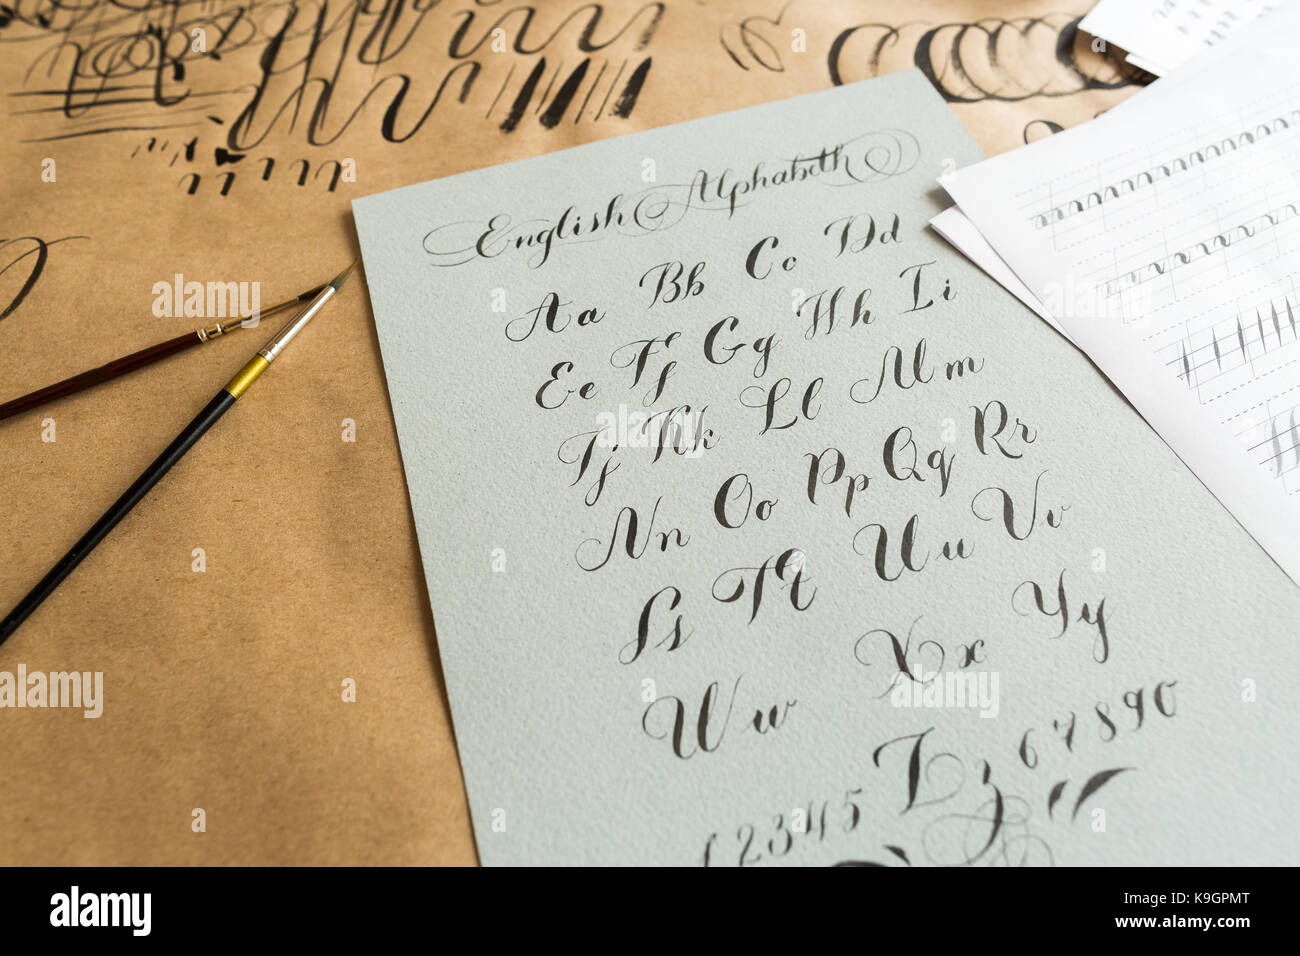 English Alphabeth
Aa Bb Cc Dd
Ee Ff Gg Hh Ii
Jj Kk Ll Mm
Nn Oo Pp Qq Rr
Ss Tt Uu Vv
Ww Xx Yy
Zz
1 2 3 4 5 6 7 8 9 0
alamy
Image ID: K9GPMT
www.alamy.com